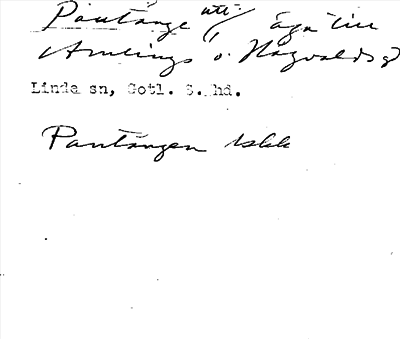 Pautänge utt. äga till
Amlings o. Hägvalds g
Linda sn, Gotl. S. hd.
Pautängen Iskk